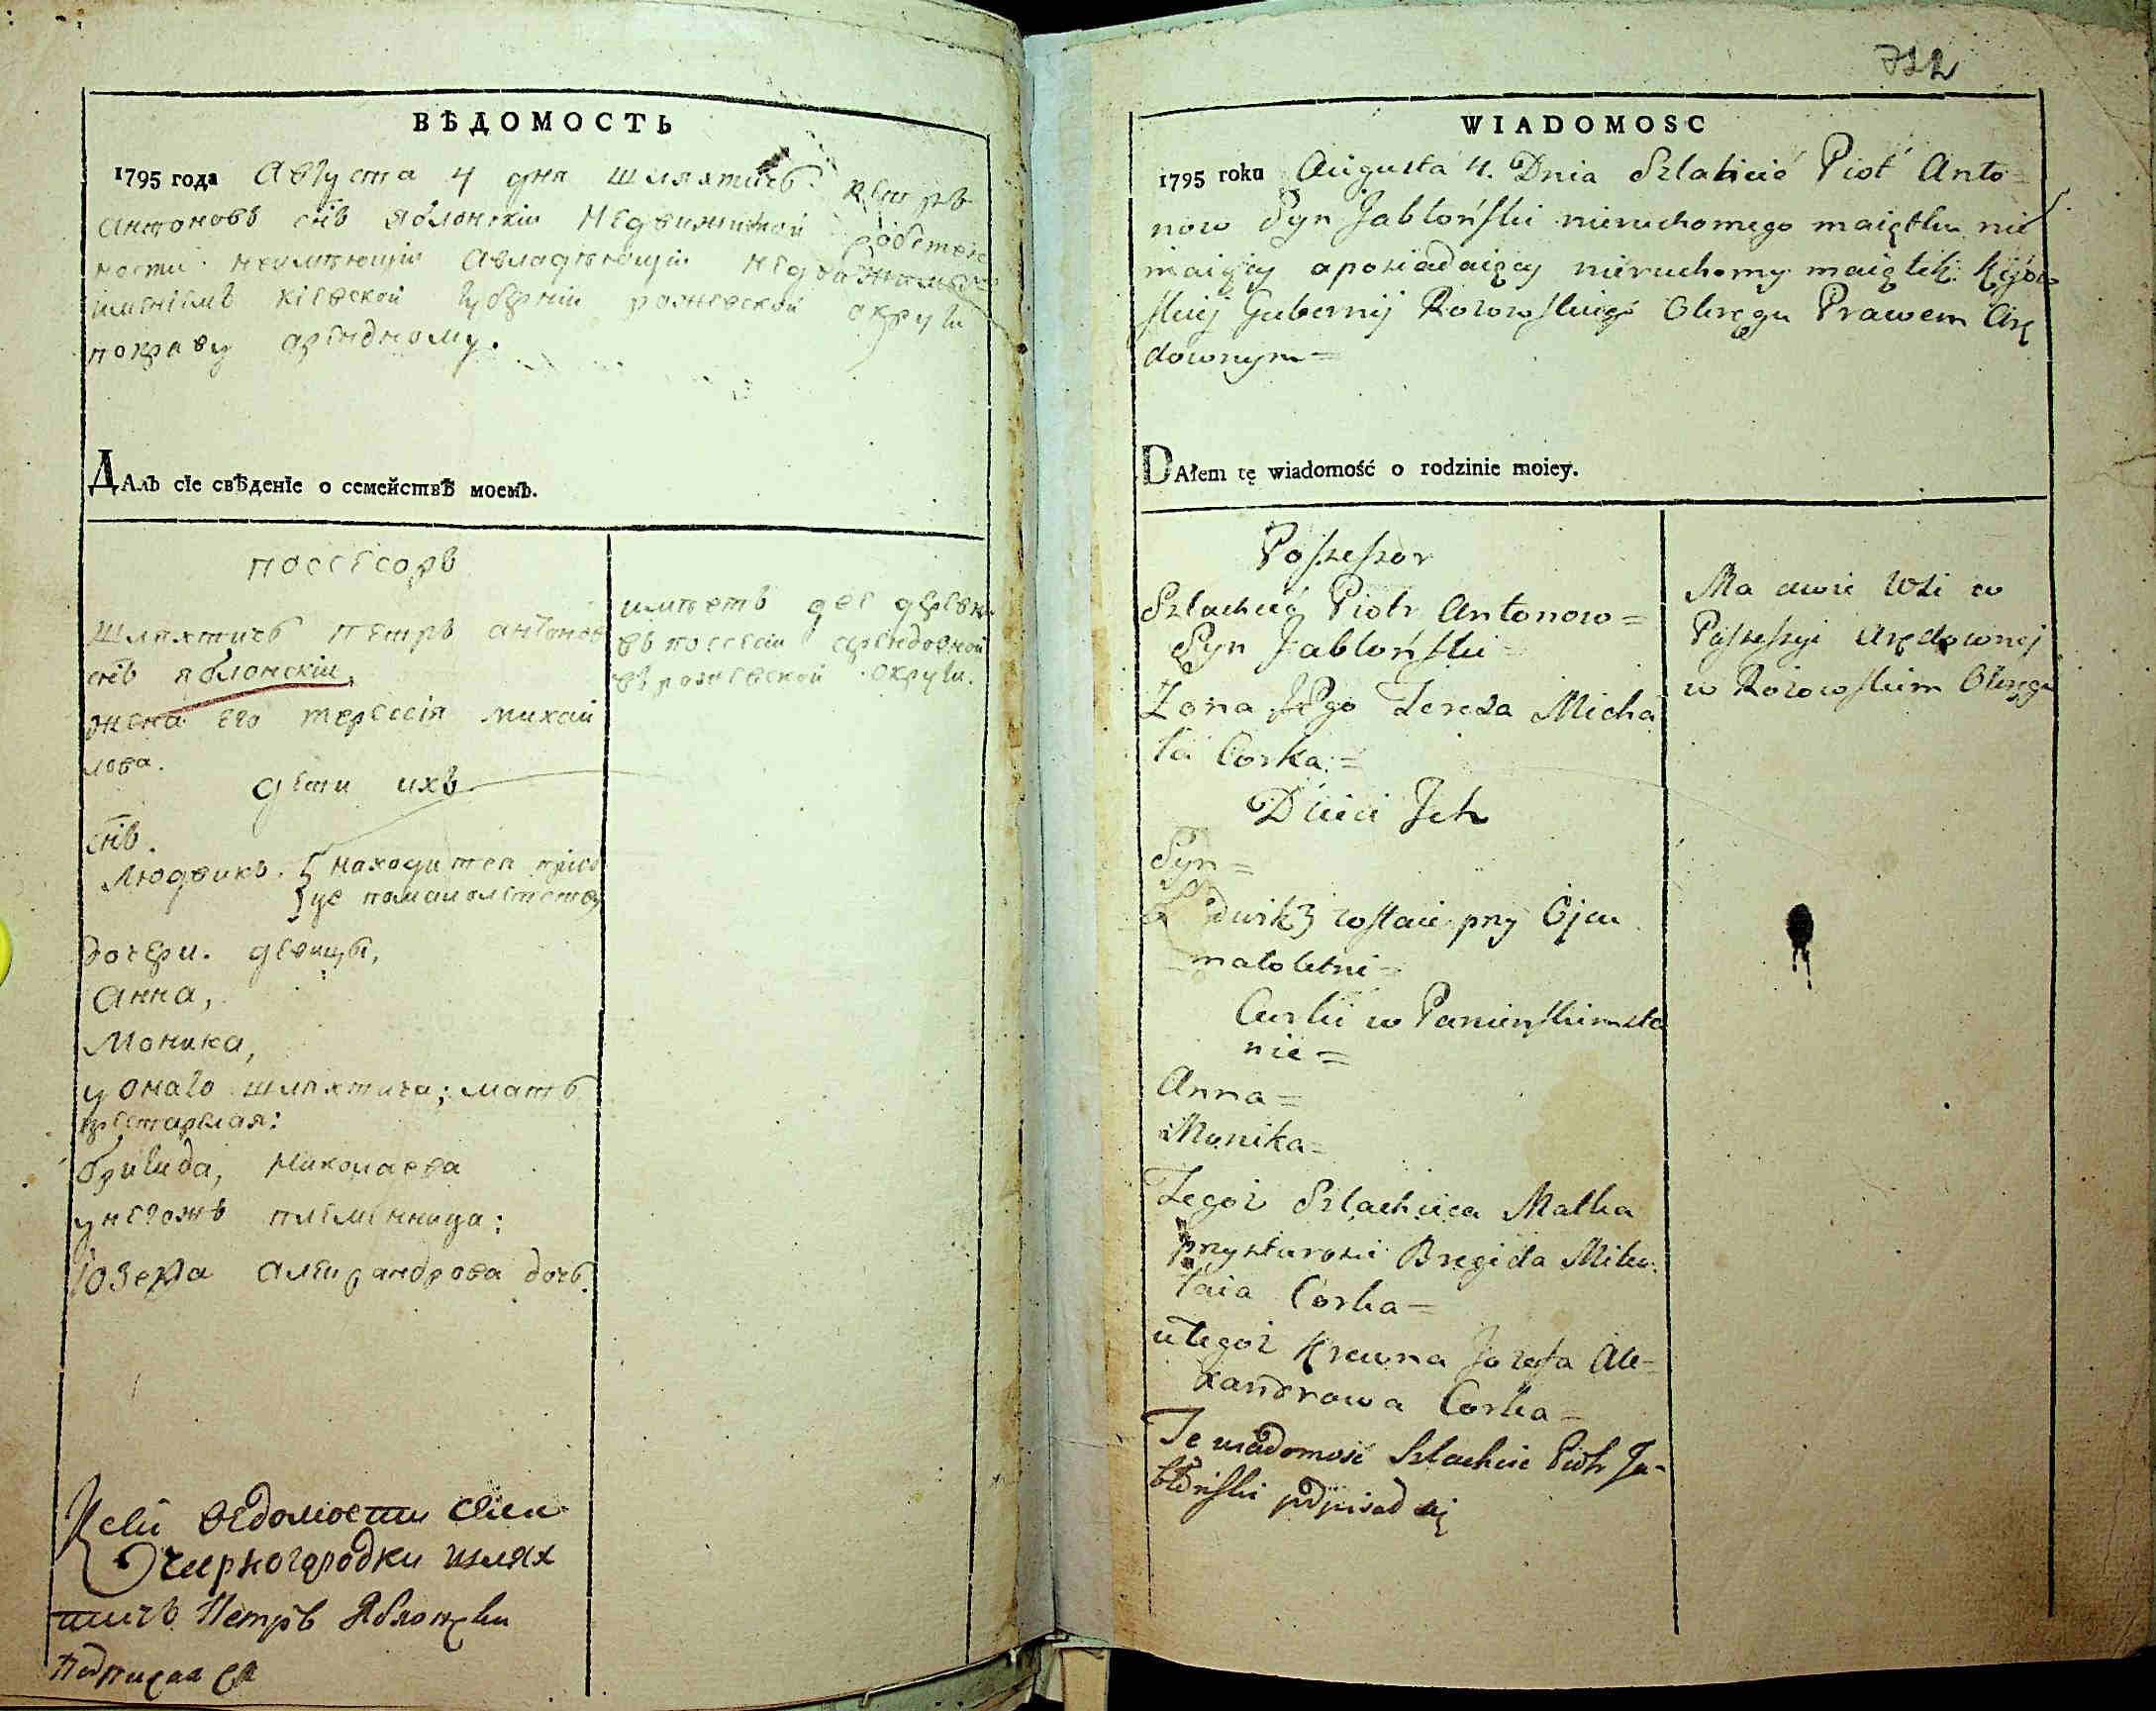 ВѢДОМОСТЬ
1795 года Августа 4 дня шляхтичь Петръ
Антоновъ снъ Яблонскій недвижимой собствен
ности неимѣющій авладѣющій недвижимымъ
имѣніемъ кіевской губерніи рожевской округи
поправу арендному.
ДАлъ сіе свѣденіе о семействѣ моемъ.
поссесоръ
Шляхтичь Петръ антоновъ
снъ яблонскіи,
жена его терессія михаи
лова.
дети ихъ
снъ.
Людвикъ. находится приот
це помалолетству
дочери. девицы,
Анна,
Моника,
у онаго шляхтича; мать
престарелая:
бригида, николаева
унегожъ племенница:
Іозефа александрова дочь.
имѣетъ две деревни
въ поссесіи арендовной
въ рожевской округи.
Ксей ведомости
Чорногородки шлях
тичъ Петръ Яблонски
Подписался
712
WIADOMOSC
1795 roku Augusta 4. Dnia Szlahcić Piotr Anto=
now Syn Jabłoński nieruchomego maiętku nie
maiący aposiadaiący nieruchomy maiątek Kijow
skiej Gubernij Rozowskiego Okręgu Prawem Arę
downym =
DAłem tę wiadomość o rodzinie moiey.
Posześzor
Szlachcic Piotr Antonow =
Syn Jabłoński =
Zona Jego Teresa Micha
ła Corka =
Dzieci Jch
Syn =
dwik zostaie przy Ojcu
małoletni =
Curki w Panieńskim sta
nie =
Anna =
Monika =
Tegoż Szlachcica Matka
przystarosci Bregida Miko
łaia Corka =
u Tegoż Krewna Jozefa Ale=
xandrowa Corka =
Te wiadomość Szlachcic Piotr Ja-
błoński podpisał się
Ma dwie Wsi w
Posześzyi Arędownej
w Rozowskim Okręgu